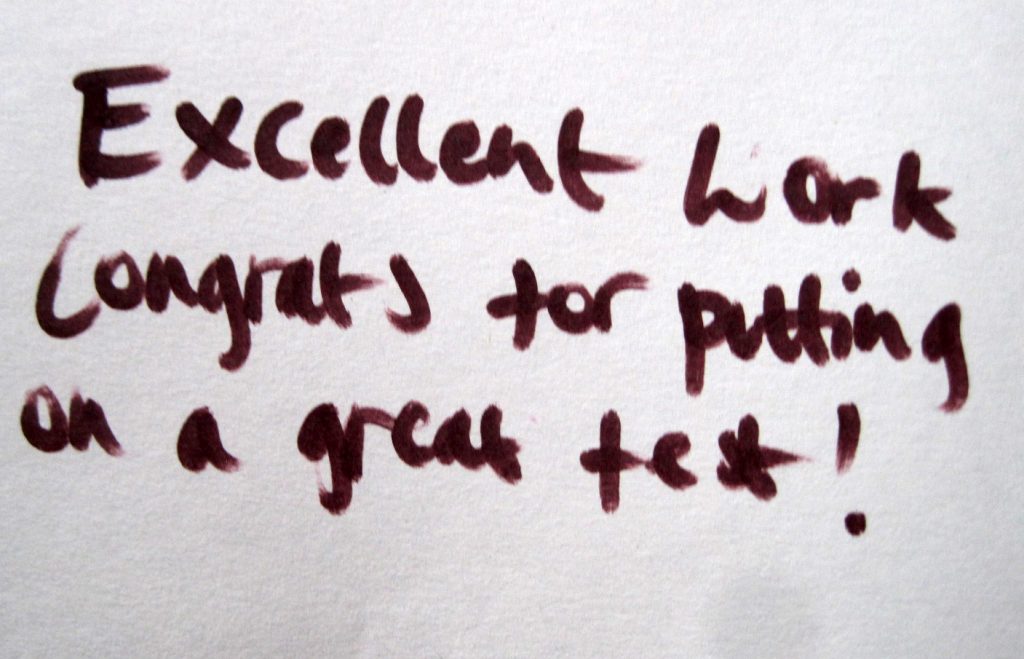 Excellent work
Congrats for putting
on a great test!